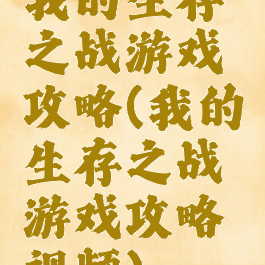 我的生存
之战游戏
攻略(我的
生存之战
游戏攻略
视频)